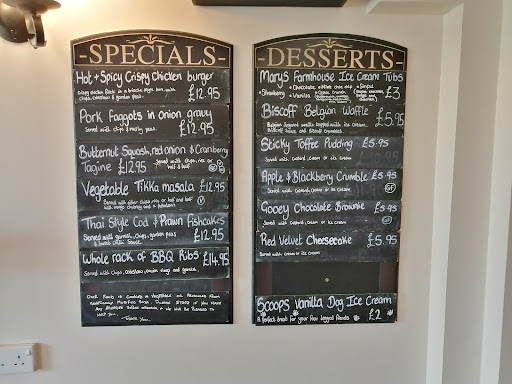 -SPECIALS-
Hot + Spicy Crispy Chicken burger
£12.95
Pork faggots in onion gravy
Served with chips & mushy peas. £12.95
Butternut Squash, red onion & Cranberry
Tagine £12.95
Vegetable Tikka masala £12.95
V
Thai Style Cod & Prawn Fishcakes
Served with garnish, chips, garden peas
& Sweet chilli Sauce £12.95
Whole rack of BBQ Ribs £14.95
Served with chips, coleslaw, onion rings and garnish.
Thank you.
-DESSERTS-
Marys Farmhouse Ice Cream Tubs
£3
• Strawberry
• Chocolate
• Vanilla
• Mint choc chip
Biscoff Belgian Waffle
£5.95
Belgian Sugared waffle topped with ice cream,
Biscoff Sauce and Biscoff crumbles.
Sticky Toffee Pudding £5.95
Served with Custard, cream or ice cream
Apple & Blackberry Crumble £5.95
Served with Custard, cream or ice cream GF
Gooey Chocolate Brownie £5.95
Served with Custard, cream or ice cream GF
Red Velvet Cheesecake £5.95
Served with cream or ice cream
Scoops Vanilla Dog Ice Cream
A perfect treat for your four legged friends £2